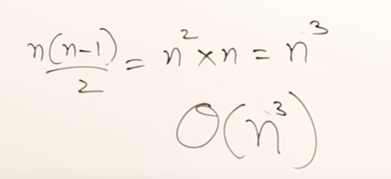 n(n-1)/2 = n² × n = n³
O(n³)